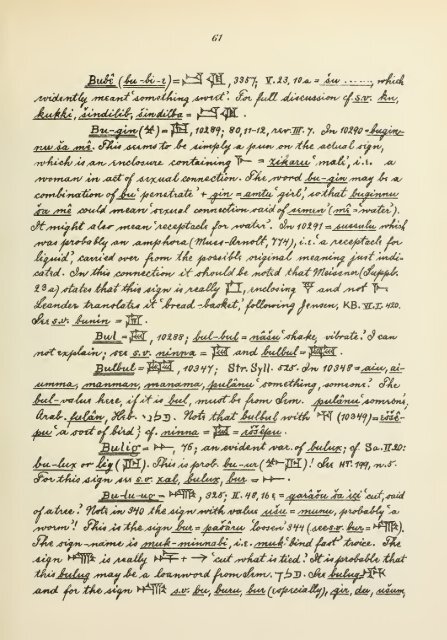 61
Bubî (bu-bi-i) = 𒁍𒉈, 3357; V.23, 10a = šu ......, which
evidently meant 'something sweet'. For full discussion cf. s.v. ku,
kukki, šindilib, šindilba =
Bu-gin (𒀭) = , 10289; 80,11-12, rev. III. 7. In 10290 = bugin-
nu ša mê. This seems to be simply a pun on the actual sign,
which is an enclosure containing = zikaru 'male', i.e. a
woman in act of sexual connection. The word bu-gin may be a
combination of bu 'penetrate' + gin = amtu 'girl', so that buginnu
ša mê could mean 'sexual connection said of semen' (mê = 'water').
It might also mean 'receptacle for water'. In 10291 = sussulu which
was probably an amphora (Muss-Arnolt, 774), i.e. 'a receptacle for
liquid', carried over from the possible original meaning just indi-
cated. In this connection it should be noted that Meissner (Suppl.
23 a) states that this sign is really , enclosing and not
Leander translates it 'bread-basket', following Jensen, KB. VI. I. 420.
See s.v. bunin =
Bul = , 10288; bul-bul = nâšu 'shake, vibrate.' I can
not explain; see s.v. ninna = and bulbul =
Bulbul = , 10347; Str. Syll. 525. In 10348 = aiu, ai-
umma, manman, manama, pulânu 'something, someone'. The
bul-value here, if it is bul, must be from Sem. pulânu 'someone',
Arab. fulân, Heb. Note that bulbul with (10349) = iššê-
pu 'a sort of bird'; cf. ninna = = iššêpu.
Bulig = , 76, an evident var. of bulux; cf. Sa. II 20:
bu-lux or lig ( ). This is prob. bu-ur ( )! See HT. 199, n. 5.
For this sign see s.v. xal, bulux, bur =
Bu-lu-ug = , 325; II. 48, 16 = garâšu ša içi 'cut, said
of a tree'? Note in 340 the sign with value ušu = munu, probably 'a
worm'! This is the sign bur = pašâru 'loosen' 344 (see s.v. bur = ).
The sign-name is muk-minnabi, i.e. muk 'bind fast' twice. The
sign is really + 'cut what is tied'? It is probable that
this bulug may be a loanword from Sem. See bulug
and for the sign s.v. bu, buru, bur (especially), gir, dew, ušum,